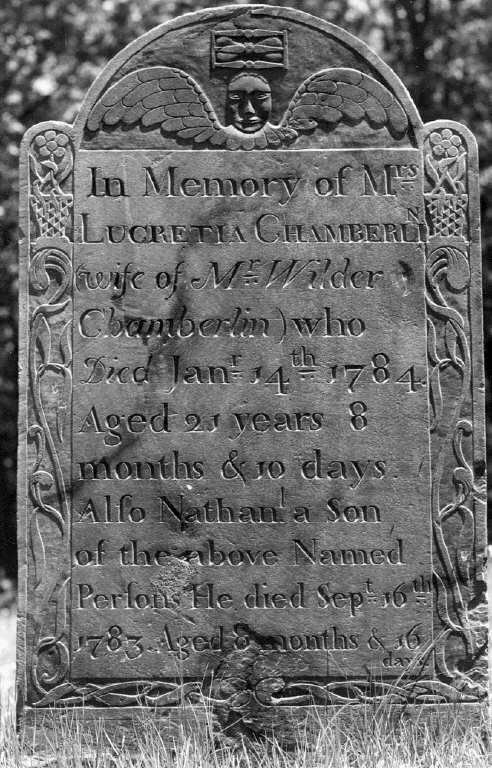 In Memory of Mrs
LUCRETIA CHAMBERLIN
(wife of Mr Wilder
Chamberlin) who
Died Janr 14th 1784.
Aged 21 years 8
months & 10 days.
Alſo Nathanl a Son
of the above Named
Perſons He died Sept 16th
1783. Aged 8 months & 16
days.